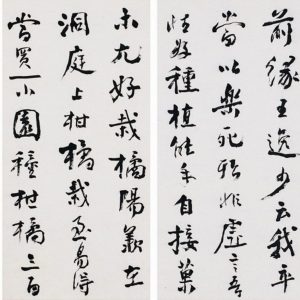 前緣王逸少云我卒
當以樂死殆非虛言吾
性好種植能手自接菓
木尤好栽橘陽羨在
洞庭上柑橘栽至易得
當買一小園種柑橘三百